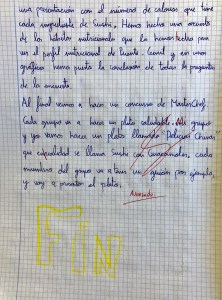 una presentación con el número de calorias que tiene
cada ingrediente de Sushi. Hemos hecho una encuesta
de los hábitos nutricionales que la hemos hecho para
ver el perfil nutricional de Quinto. Camil y en unos
gráficos hemos puesto la conclusión de todas la preguntas
de la encuesta.
Al final vamos a hacer un concurso de MasterChef.
Cada grupo va a hacer un plato saludable. Mi grupo
y yo vamos hacer un plato llamado Delicias Chinas
que en realidad se llama Sushi con Guacamole, cada
miembro del grupo va a tener un gracias por ejemplo,
y voy a presentar el plato.
FIN